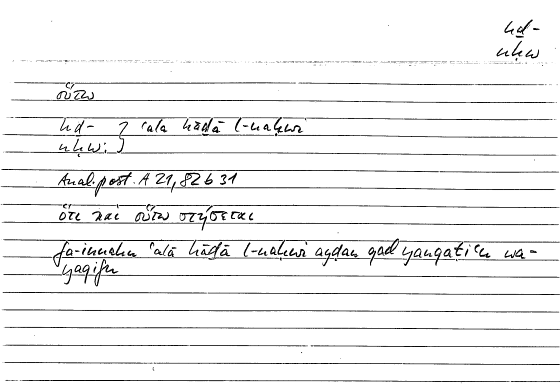 hḏ-
nḥw
οὕτω
hḏ-
nḥw: } ʿalā hāḏā l-naḥwi
Anal. post. A 21, 82 b 31
ὅτι καὶ οὕτω στήσεται
fa-innahu ʿalā hāḏā l-naḥwi ayḍan qad yanqaṭiʿu wa-
yaqifu